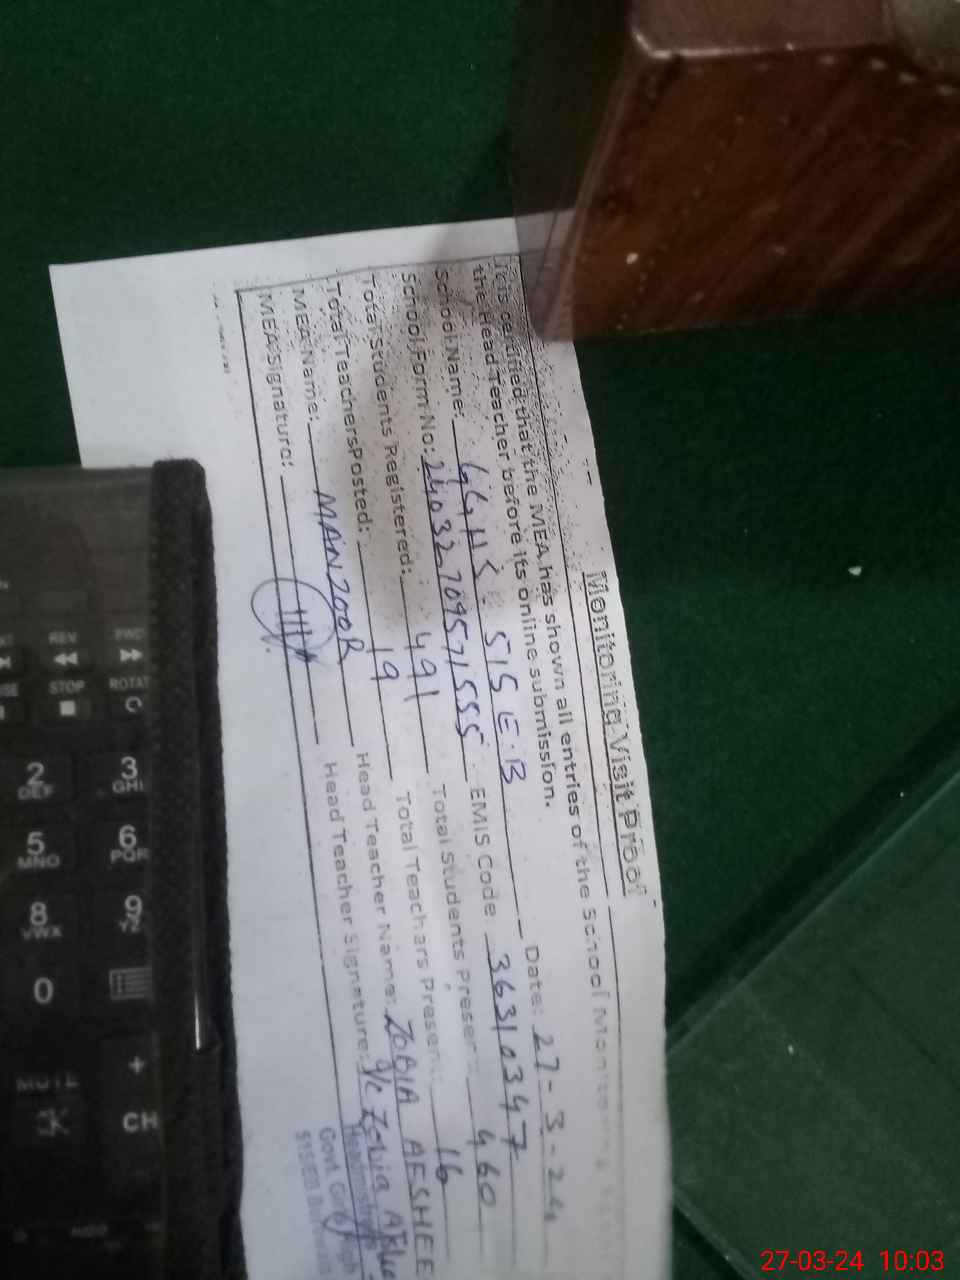 Monitoring Visit Proof
It is certified that the MEA has shown all entries of the School Monitoring
the Head Teacher before its online submission.
School Name: GGHS 515 E.B Date: 27-3-24
School Form No: EMIS Code 36310347
Total Students Registered: 491 Total Students Present 460
Total Teachers Posted: 19 Total Teachers Present: 16
MEA Name: MANZOOR Head Teacher Name: ZOBIA AESHEE
MEA Signature: Head Teacher Signature: g/c Zobia
Headmistress
Govt. Girls High
515EB
REV
FWD
STOP
ROTAT
2 DEF
3 GHI
5 MNO
6 PQR
8 VWX
9 YZ
0
MUTE
+
CH
27-03-24 10:03